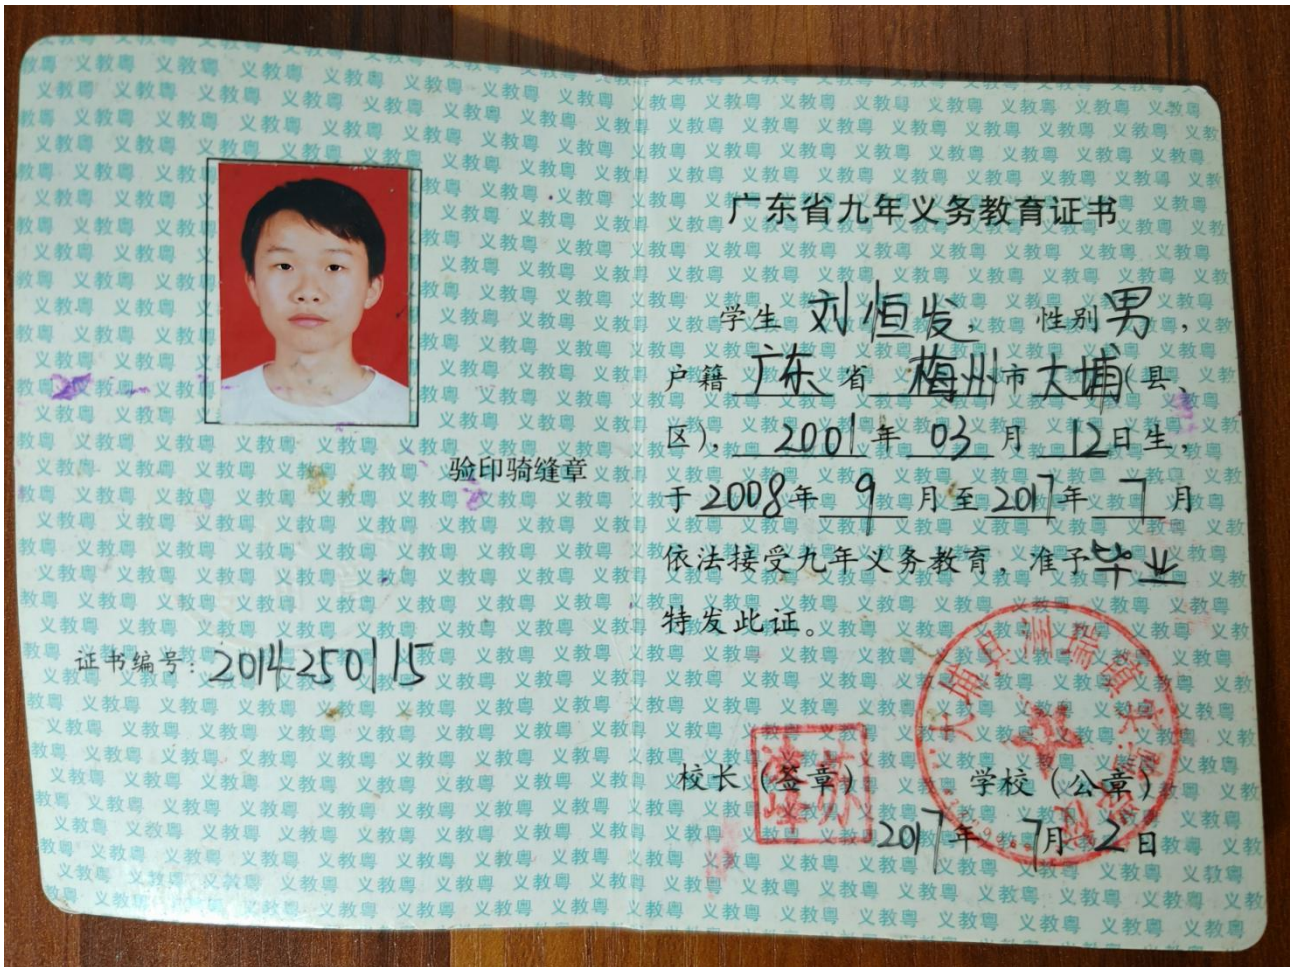 验印骑缝章
证书编号：2014250115
广东省九年义务教育证书
学生 刘恒发，性别 男，
户籍 广东 省 梅州 市 大埔（县、
区），2001 年 03 月 12 日生，
于 2008 年 9 月至 2017 年 7 月
依法接受九年义务教育，准予毕业
特发此证。
校长（签章） 学校（公章）
2017 年 7 月 2 日